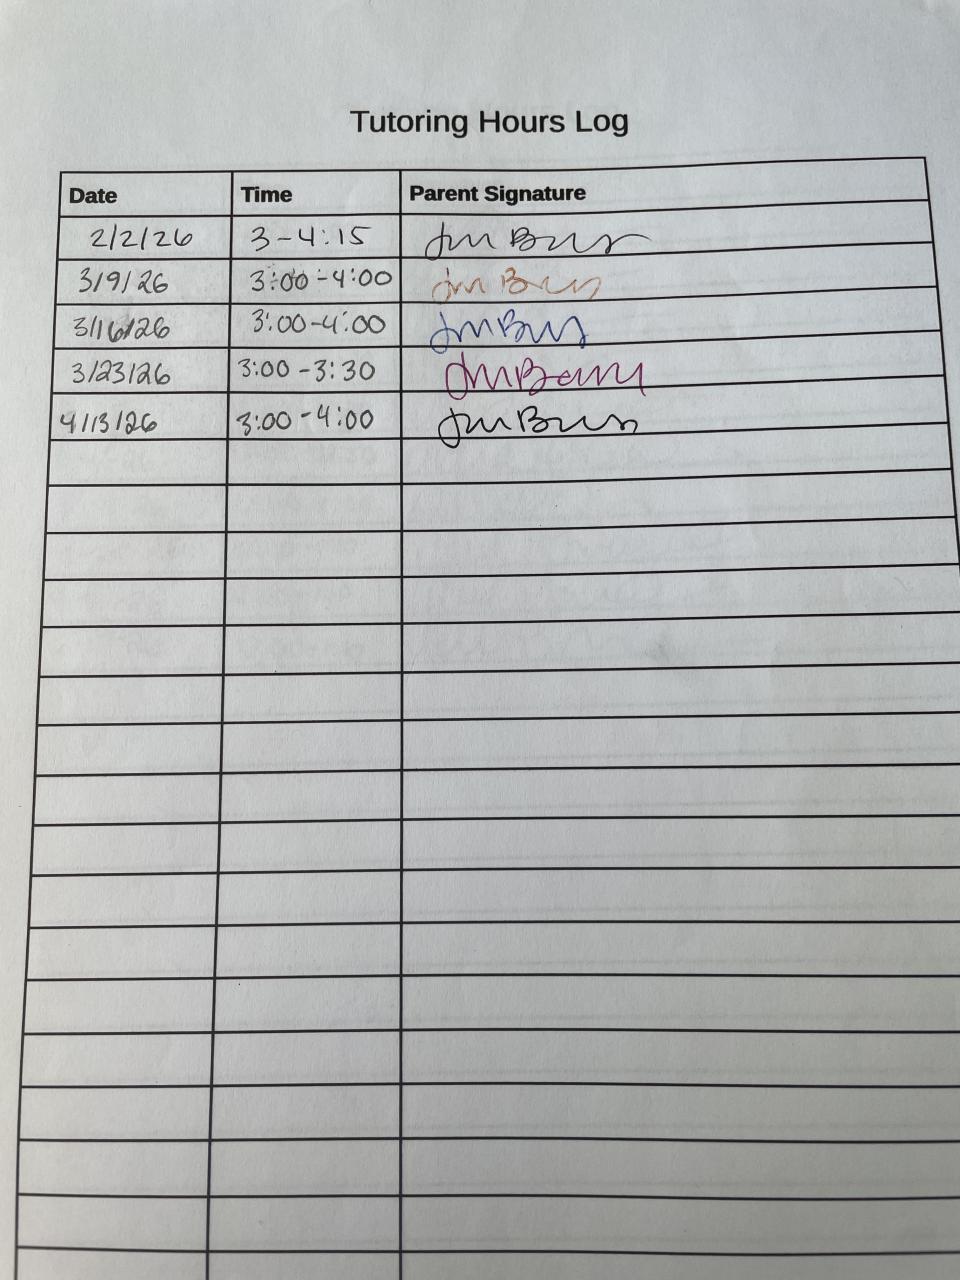 Tutoring Hours Log
Date Time Parent Signature
2/2/26 3-4:15
3/9/26 3:00-4:00
3/16/26 3:00-4:00
3/23/26 3:00-3:30
4/13/26 3:00-4:00